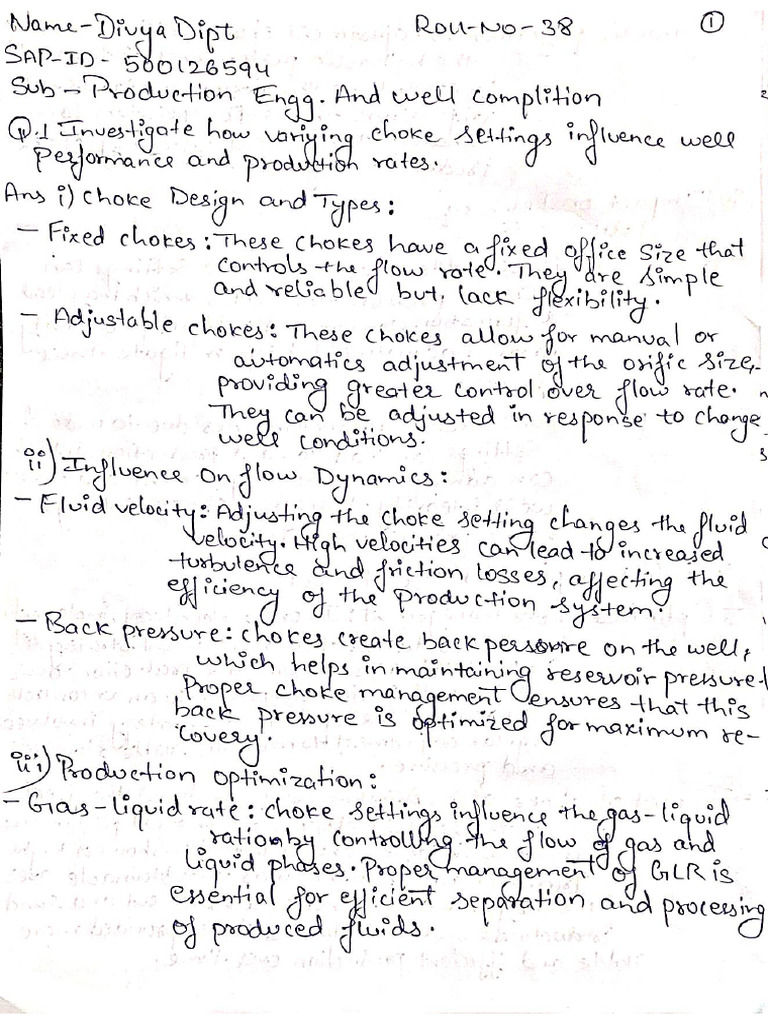 Name-Divya Dipt Roll-No-38 1
SAP-ID- 500126594
Sub - Production Engg. And well complition
Q.1 Investigate how variying choke settings influence well
performance and production rates.
Ans i) Choke Design and Types:
- Fixed chokes: These chokes have a fixed office size that
controls the flow rate. They are simple
and reliable but, lack flexibility.
- Adjustable chokes: These chokes allow for manual or
automatics adjustment of the orific size,
providing greater control over flow rate.
They can be adjusted in response to change
well conditions.
ii) Influence on flow Dynamics:
- Fluid velocity: Adjusting the choke setting changes the fluid
velocity. High velocities can lead to increased
turbulence and friction losses, affecting the
efficiency of the production system.
- Back pressure: chokes create back on the well,
which helps in maintaining reservoir pressure.
Proper choke management ensures that this
back pressure is optimized for maximum re-
covery.
iii) Production optimization:
- Gas-liquid rate: choke settings influence the gas-liquid
ration by controlling the flow of gas and
liquid phases. Proper management of GLR is
essential for efficient separation and processing
of produced fluids.